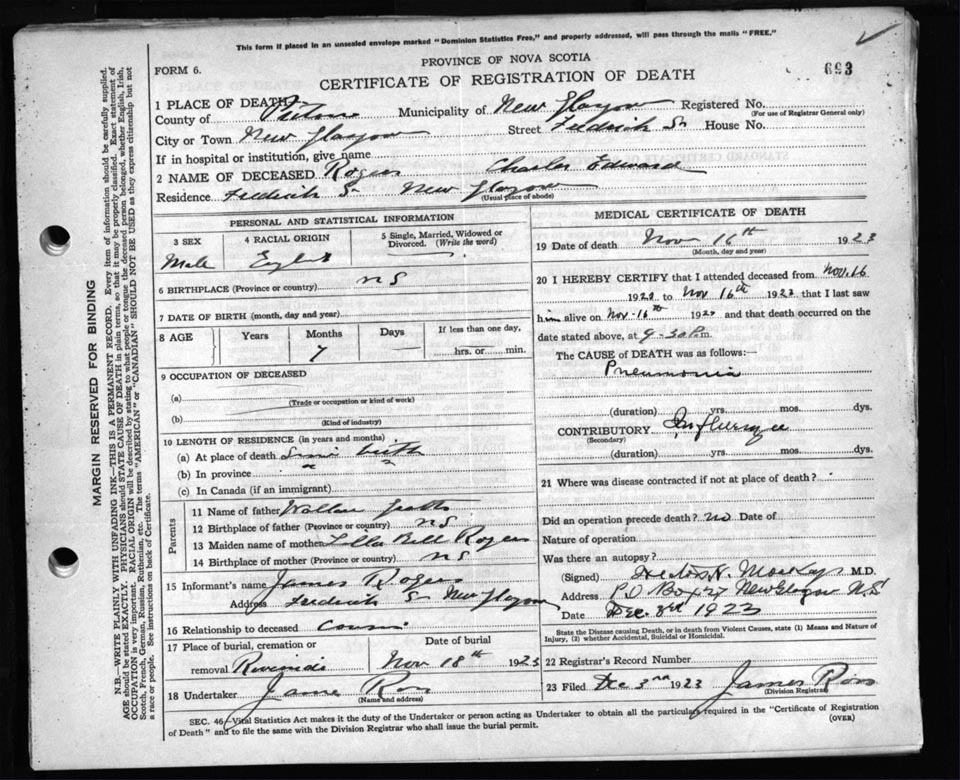 This form if placed in an unsealed envelope marked "Dominion Statistics Free," and properly addressed, will pass through the mails "FREE."
PROVINCE OF NOVA SCOTIA
FORM 6.
693
CERTIFICATE OF REGISTRATION OF DEATH
1 PLACE OF DEATH
County of Pictou Municipality of New Glasgow Registered No.
(For use of Registrar General only)
City or Town New Glasgow Street Fredrick St House No.
If in hospital or institution, give name
2 NAME OF DECEASED Rogers Charles Edward
Residence Fredrick St New Glasgow
(Usual place of abode)
PERSONAL AND STATISTICAL INFORMATION
3 SEX 4 RACIAL ORIGIN 5 Single, Married, Widowed or Divorced. (Write the word)
Male
6 BIRTHPLACE (Province or country) NS
7 DATE OF BIRTH (month, day and year)
8 AGE Years Months Days If less than one day,
7 hrs. or min.
9 OCCUPATION OF DECEASED
(a)
(Trade or occupation or kind of work)
(b)
(Kind of industry)
10 LENGTH OF RESIDENCE (in years and months)
(a) At place of death Since birth
(b) In province "
(c) In Canada (if an immigrant)
Parents
11 Name of father
12 Birthplace of father (Province or country) NS
13 Maiden name of mother Bell Rogers
14 Birthplace of mother (Province or country) NS
15 Informant's name James Rogers
Address Fredrick St New Glasgow
16 Relationship to deceased Cousin
17 Place of burial, cremation or removal Riverside
Date of burial
Nov 18th 1923
18 Undertaker James Ross
(Name and address)
MEDICAL CERTIFICATE OF DEATH
19 Date of death Nov 16th 1923
(Month, day and year)
20 I HEREBY CERTIFY that I attended deceased from Nov. 16
1923 to Nov 16th 1923 that I last saw
him alive on Nov. 16th 192 and that death occurred on the
date stated above, at 9-30 P.m.
The CAUSE of DEATH was as follows:—
Pneumonia
(duration) yrs. mos. dys.
CONTRIBUTORY Influenza
(Secondary)
(duration) yrs. mos. dys.
21 Where was disease contracted if not at place of death?
Did an operation precede death? no Date of
Nature of operation
Was there an autopsy?
(Signed) M.D.
Address P.O Box 27 New Glasgow N.S
Date Dec. 3rd 1923
State the Disease causing Death, or in death from Violent Causes, state (1) Means and Nature of Injury, (2) whether Accidental, Suicidal or Homicidal.
22 Registrar's Record Number
23 Filed Dec 3rd 1923 James Ross
(Division Registrar)
SEC. 46—Vital Statistics Act makes it the duty of the Undertaker or person acting as Undertaker to obtain all the particulars required in the "Certificate of Registration
of Death" and to file the same with the Division Registrar who shall issue the burial permit. (OVER)
MARGIN RESERVED FOR BINDING
N.B.—WRITE PLAINLY WITH UNFADING INK—THIS IS A PERMANENT RECORD. Every item of information should be carefully supplied.
AGE should be stated EXACTLY. PHYSICIANS should STATE CAUSE OF DEATH in plain terms, so that it may be properly classified. Exact statement of
OCCUPATION is very important. RACIAL ORIGIN will be described by stating to what people or tongue the deceased person belonged, whether English, Irish,
Scotch, French, German, Russian, Ruthenian, etc. The terms "AMERICAN" or "CANADIAN" SHOULD NOT BE USED as they express citizenship but not
a race or people. See instructions on back of Certificate.